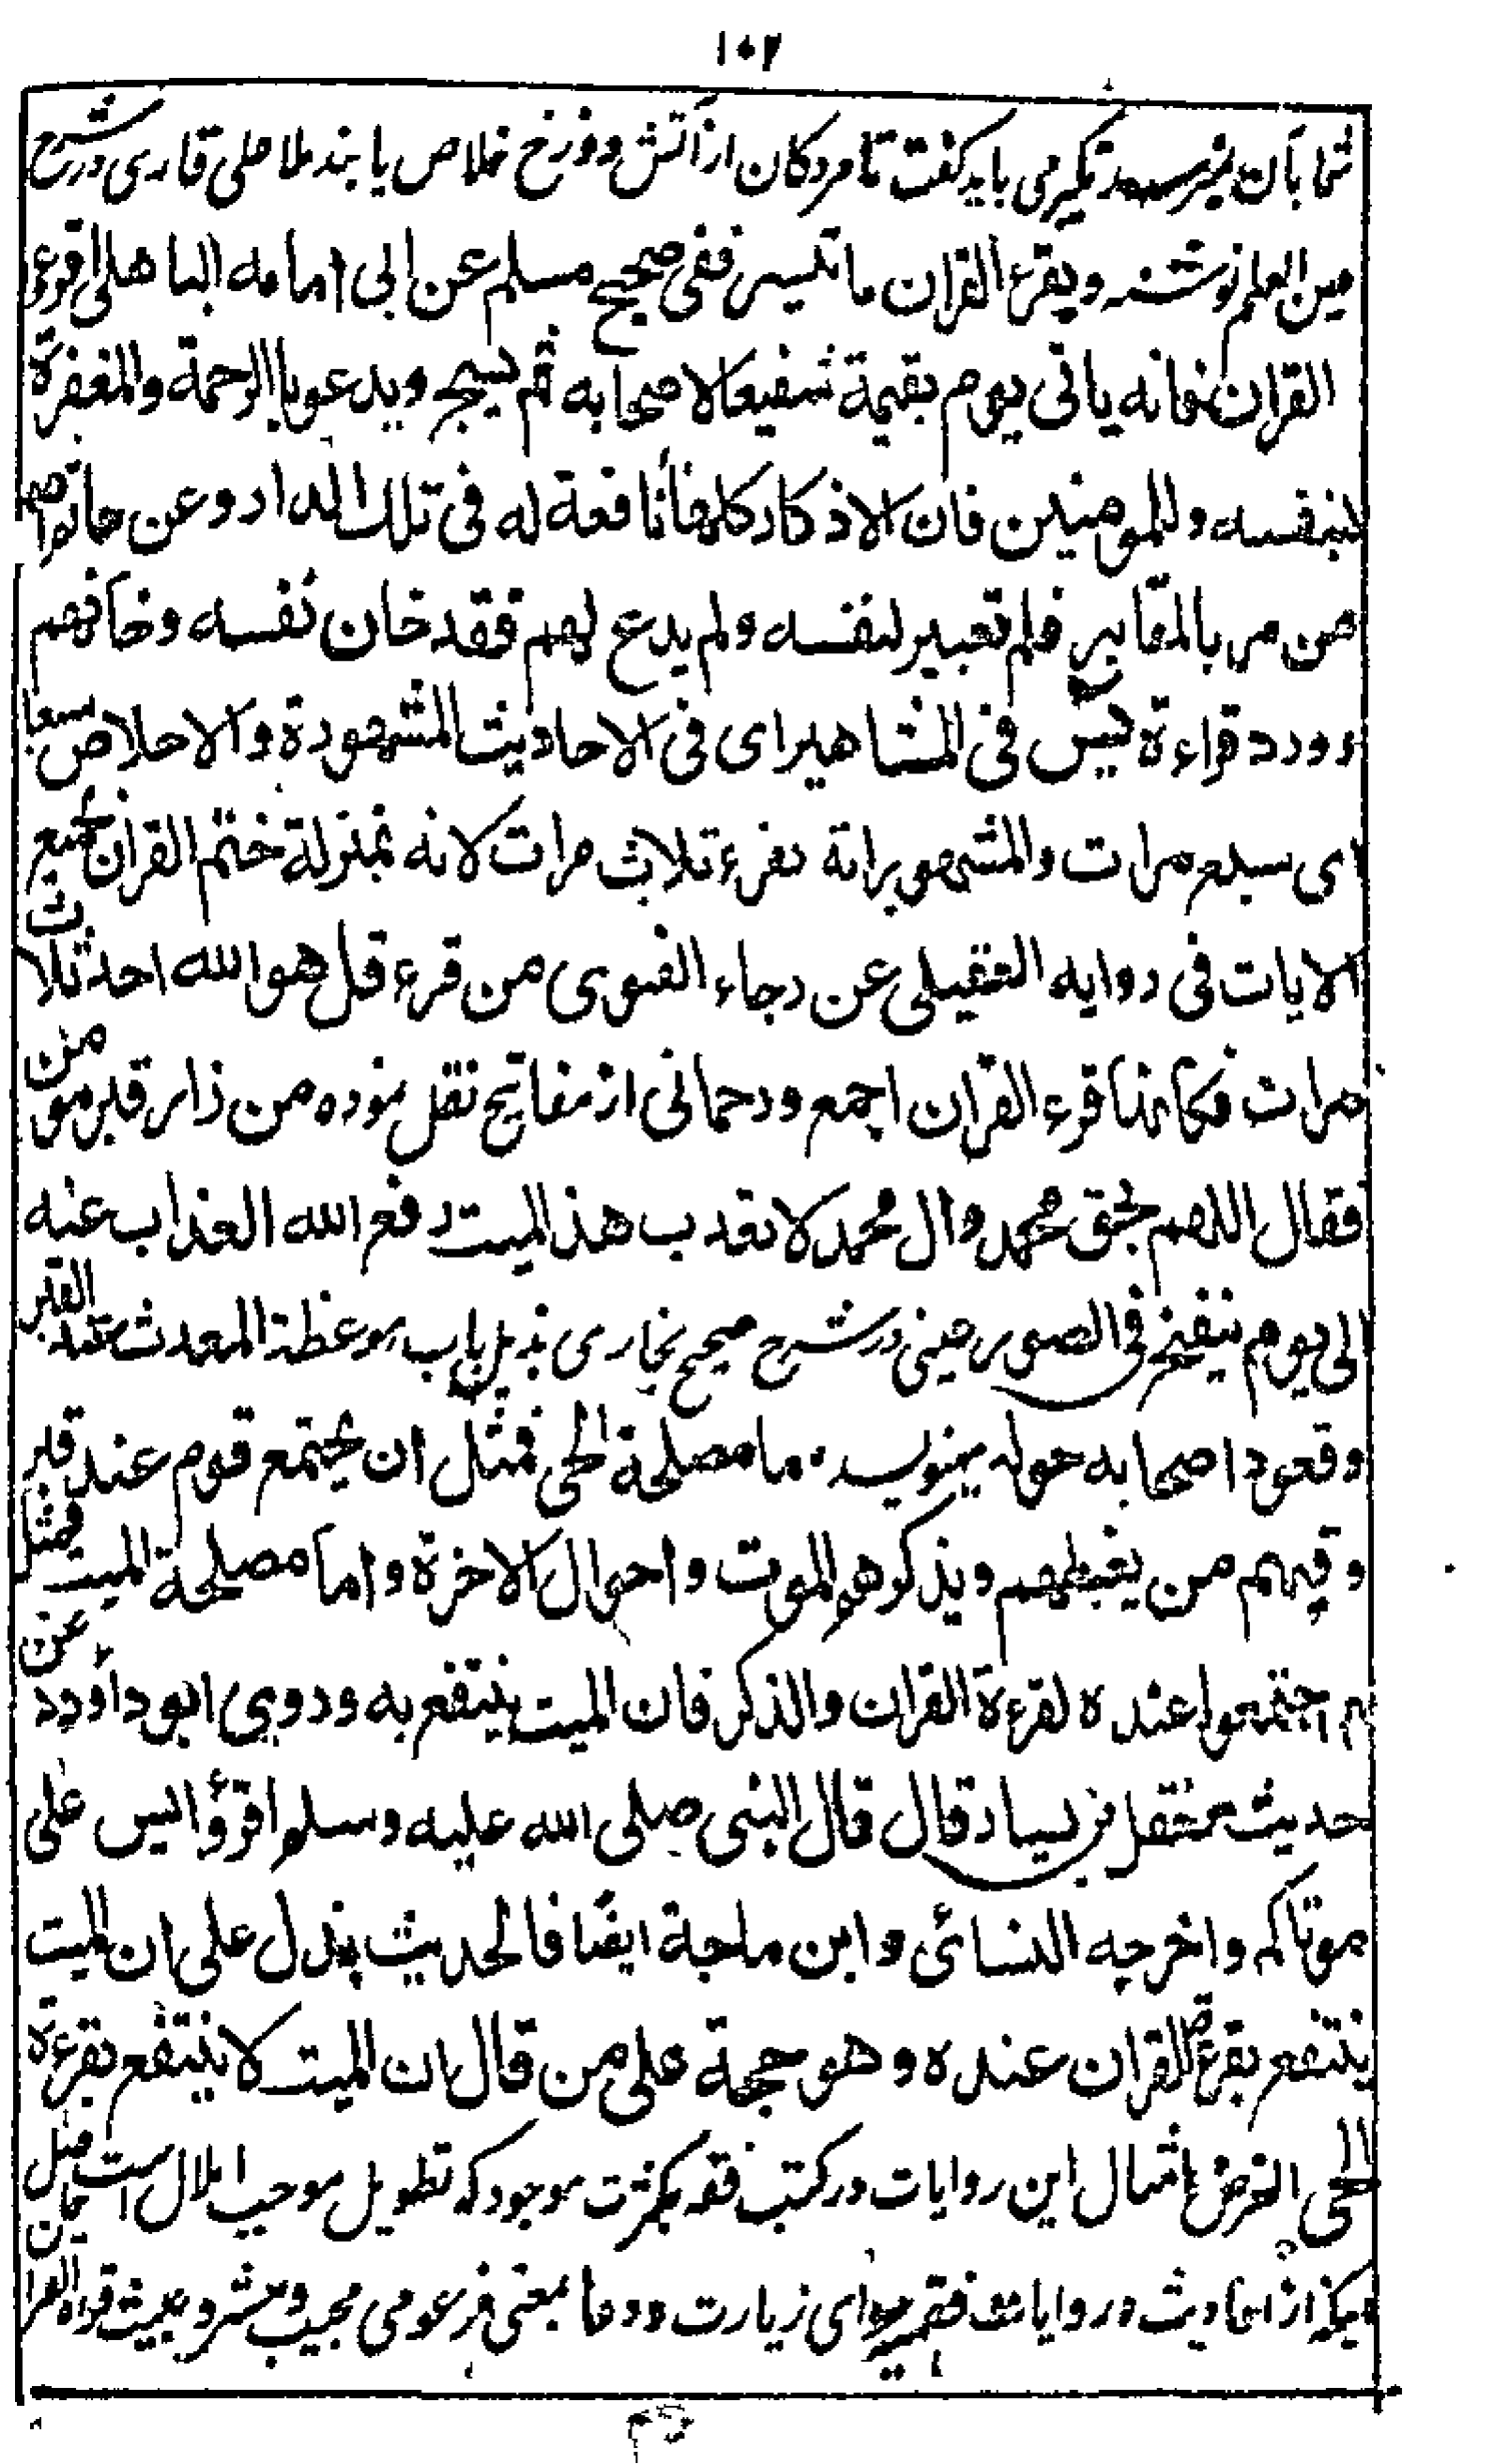 ۱۰۲
شما بآن برسد تکبیر می باید گفت تا مردکان از آتش دوزخ خلاص یابند ملا علی قاری در شرح
عین العلم نوشته ویقرء القران ما تیسر ففی صحیح مسلم عن ابی امامه الباهلی اقرءو
القران فانه یاتی یوم بقیمة شفیعا لاصحابه ثم یسبح ویدعو باالرحمة والمغفرة
لنفسه وللمومنین فان الاذکار کلها نافعة له فی تلک الدار وعن حاتم اصم
من مر بالمقابر فلم تعبیر لنفسه ولم یدع لهم فقد خان نفسه وخانهم
وورد قراءة یٰس فی المشاهیر ای فی الاحادیث المشهورة والاخلاص سبعا
ای سبع مرات والمشهور انه یقرء ثلاث مرات لانه بمنزلة ختم القران بجمیع
الایات فی روایه العقیلی عن رجاء الغنوی من قرء قل هو الله احد ثلاث
مرات فکانما قرء القران اجمع ورحمانی از مفاتیح نقل نموده من زار قبر مومن
فقال اللهم بحق محمد وال محمد لا تعذب هذ المیت رفع الله العذاب عنه
الی یوم ینفخ فی الصور عینی در شرح صحیح بخاری بذیل باب موعظة المحدث عند القبر
وقعود اصحابه حوله مینویسد ما مصلحة الحی فمثل ان یجتمع قوم عند قبر
وفیهم من یعظهم ویذکرهم الموت واحوال الاخرة واما مصلحة المیت فمثل
اجتمعوا عنده لقرءة القران والذکر فان المیت ینتفع به وروی ابو داؤد عن
حدیث معقل بن یسار قال قال النبی صلی الله علیه وسلم اقرؤا یس علی
موتاکم واخرجه النسائی وابن ماجة ایضا فالحدیث یدل علی ان المیت
ینتفع بقرءة القران عنده وهو حجة علی من قال ان المیت لا ینتفع بقرءة
الحی الغرض امثال این روایات در کتب فقه بکثرت موجود که تطویل موجب املال است
از احادیث و روایات فقهیه برای زیارت ودعا بمعنی